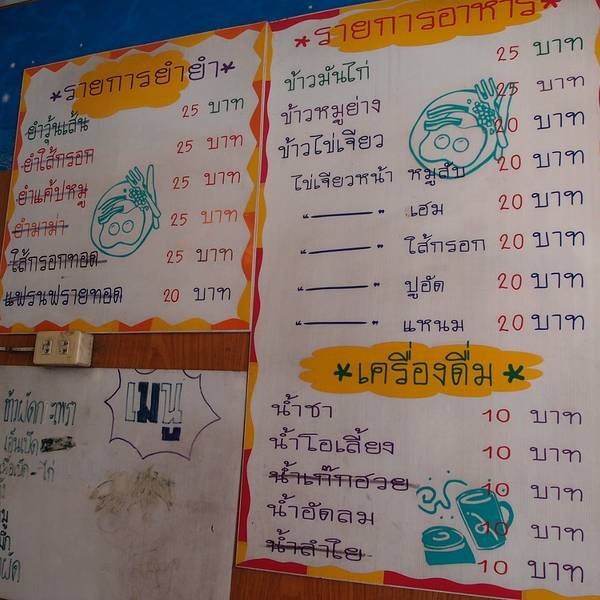 *รายการยำยำ*
ยำวุ้นเส้น 25 บาท
ยำไส้กรอก 25 บาท
ยำแค้ปหมู 25 บาท
ยำมาม่า 25 บาท
ไส้กรอกทอด 25 บาท
แฟรนฟรายทอด 20 บาท
*รายการอาหาร*
ข้าวมันไก่ 25 บาท
ข้าวหมูย่าง 25 บาท
ข้าวไข่เจียว 20 บาท
ไข่เจียวหน้า หมูสับ 20 บาท
"———" แฮม 20 บาท
"———" ไส้กรอก 20 บาท
"———" ปูอัด 20 บาท
"———" แหนม 20 บาท
*เครื่องดื่ม*
น้ำชา 10 บาท
น้ำโอเลี้ยง 10 บาท
น้ำเก๊กฮวย 10 บาท
น้ำอัดลม 10 บาท
น้ำลำไย 10 บาท
เมนู